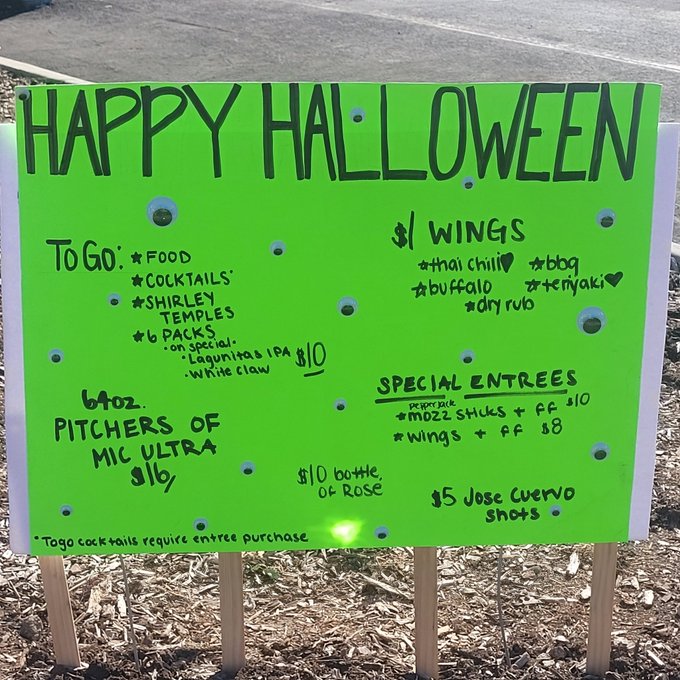 HAPPY HALLOWEEN
TO GO: *FOOD
*COCKTAILS
*SHIRLEY
TEMPLES
*6 PACKS
·on special·
·Lagunitas IPA $10
·White Claw
64oz.
PITCHERS OF
MIC ULTRA
$16
$1 WINGS
*thai chili♥ *bbq
*buffalo *teriyaki♥
*dry rub
SPECIAL ENTREES
pepperjack
*mozz sticks + ff $10
*wings + ff $8
$10 bottle
of Rose
$5 Jose Cuervo
shots
*Togo cocktails require entree purchase